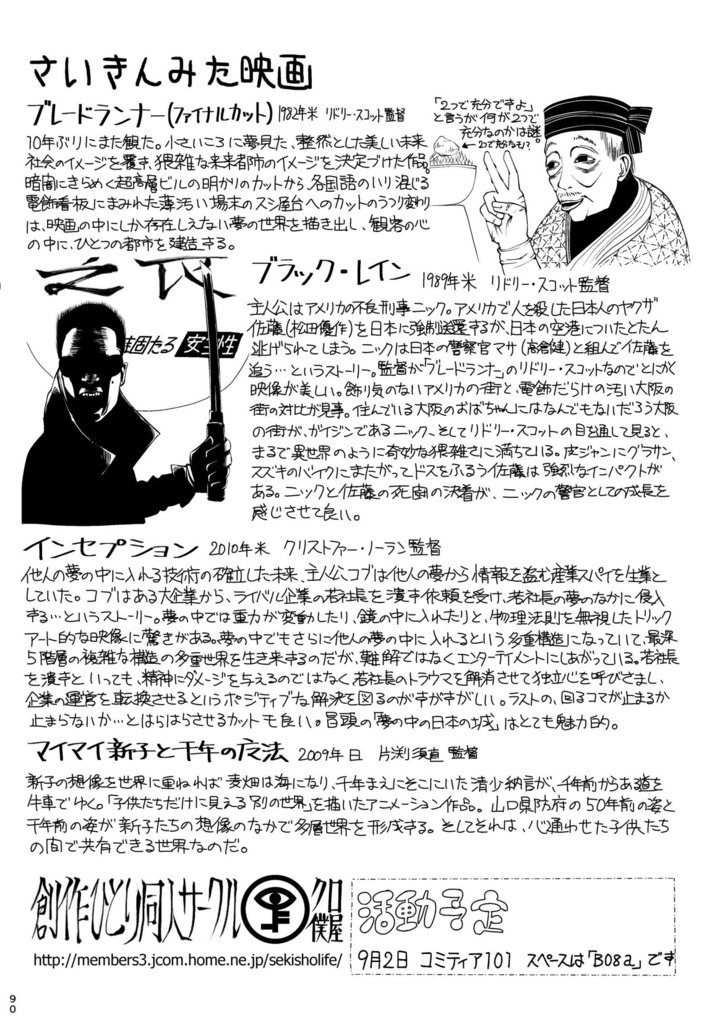 さいきんみた映画
ブレードランナー(ファイナルカット) 1982年米 リドリー・スコット監督
10年ぶりにまた観た。小さいころに夢見た、整然とした美しい未来
社会のイメージを覆す、猥雑な未来都市のイメージを決定づけた作品。
暗闇にきらめく超高層ビルの明かりのカットから、各国語のいり混じる
電飾看板にまみれた薄汚い場末のスシ屋台へのカットのうつり変わり
は、映画の中にしか存在しえない夢の世界を描き出し、観客の心
の中に、ひとつの都市を建造する。
「2つで充分ですよ」
と言うが何が2つで
充分なのかは謎。
ブラック・レイン 1989年米 リドリー・スコット監督
主人公はアメリカの不良刑事ニック。アメリカで人を殺した日本人のヤクザ
佐藤(松田優作)を日本に強制送還するが、日本の空港についたとたん
逃げられてしまう。ニックは日本の警察官マサ(高倉健)と組んで佐藤を
追う…というストーリー。監督が「ブレードランナー」のリドリー・スコットなのでとにかく
映像が美しい。飾り気のないアメリカの街と、電飾だらけの汚い大阪の
街の対比が見事。住んでいる大阪のおばちゃんにはなんでもないだろう大阪
の街が、ガイジンであるニック、そしてリドリー・スコットの目を通して見ると、
まるで異世界のように奇妙な猥雑さに満ちている。皮ジャンにグラサン、
スズキのバイクにまたがってドスをふるう佐藤は強烈なインパクトが
ある。ニックと佐藤の死闘の決着が、ニックの警官としての成長を
感じさせて良い。
安全性
インセプション 2010年米 クリストファー・ノーラン監督
他人の夢の中に入れる技術の確立した未来、主人公、コブは他人の夢から情報を盗む産業スパイを生業と
していた。コブはある大企業から、ライバル企業の若社長を潰す依頼を受け、若社長の夢のなかに侵入
する…というストーリー。夢の中では重力が変動したり、鏡の中に入れたりと、物理法則を無視したトリック
アート的な映像に驚きがある。夢の中でもさらに他人の夢の中に入れるという多重構造になっていて、最深
5階層の複雑な構造の多重世界を生き来するのだが、難解ではなくエンターテイメントにしあがっている。若社長
を潰すといっても、精神にダメージを与えるのではなく若社長のトラウマを解消させて独立心を呼びさまし、
企業の運営を転換させるというポジティブな解決を図るのがすがすがしい。ラストの、回るコマが止まるか
止まらないか…とはらはらさせるカットも良い。冒頭の「夢の中の日本の城」はとても魅力的。
マイマイ新子と千年の魔法 2009年日 片渕須直 監督
新子の想像を世界に重ねれば麦畑は海になり、千年まえにそこにいた清少納言が、千年前からある道を
牛車でゆく。「子供たちだけに見える別の世界」を描いたアニメーション作品。山口県防府の50年前の姿と
千年前の姿が新子たちの想像のなかで多層世界を形成する。そしてそれは、心通わせた子供たち
の間で共有できる世界なのだ。
創作ひとり同人サークル クロ僕屋
http://members3.jcom.home.ne.jp/sekisholife/
活動予定
9月2日 コミティア101 スペースは「B08a」です
90